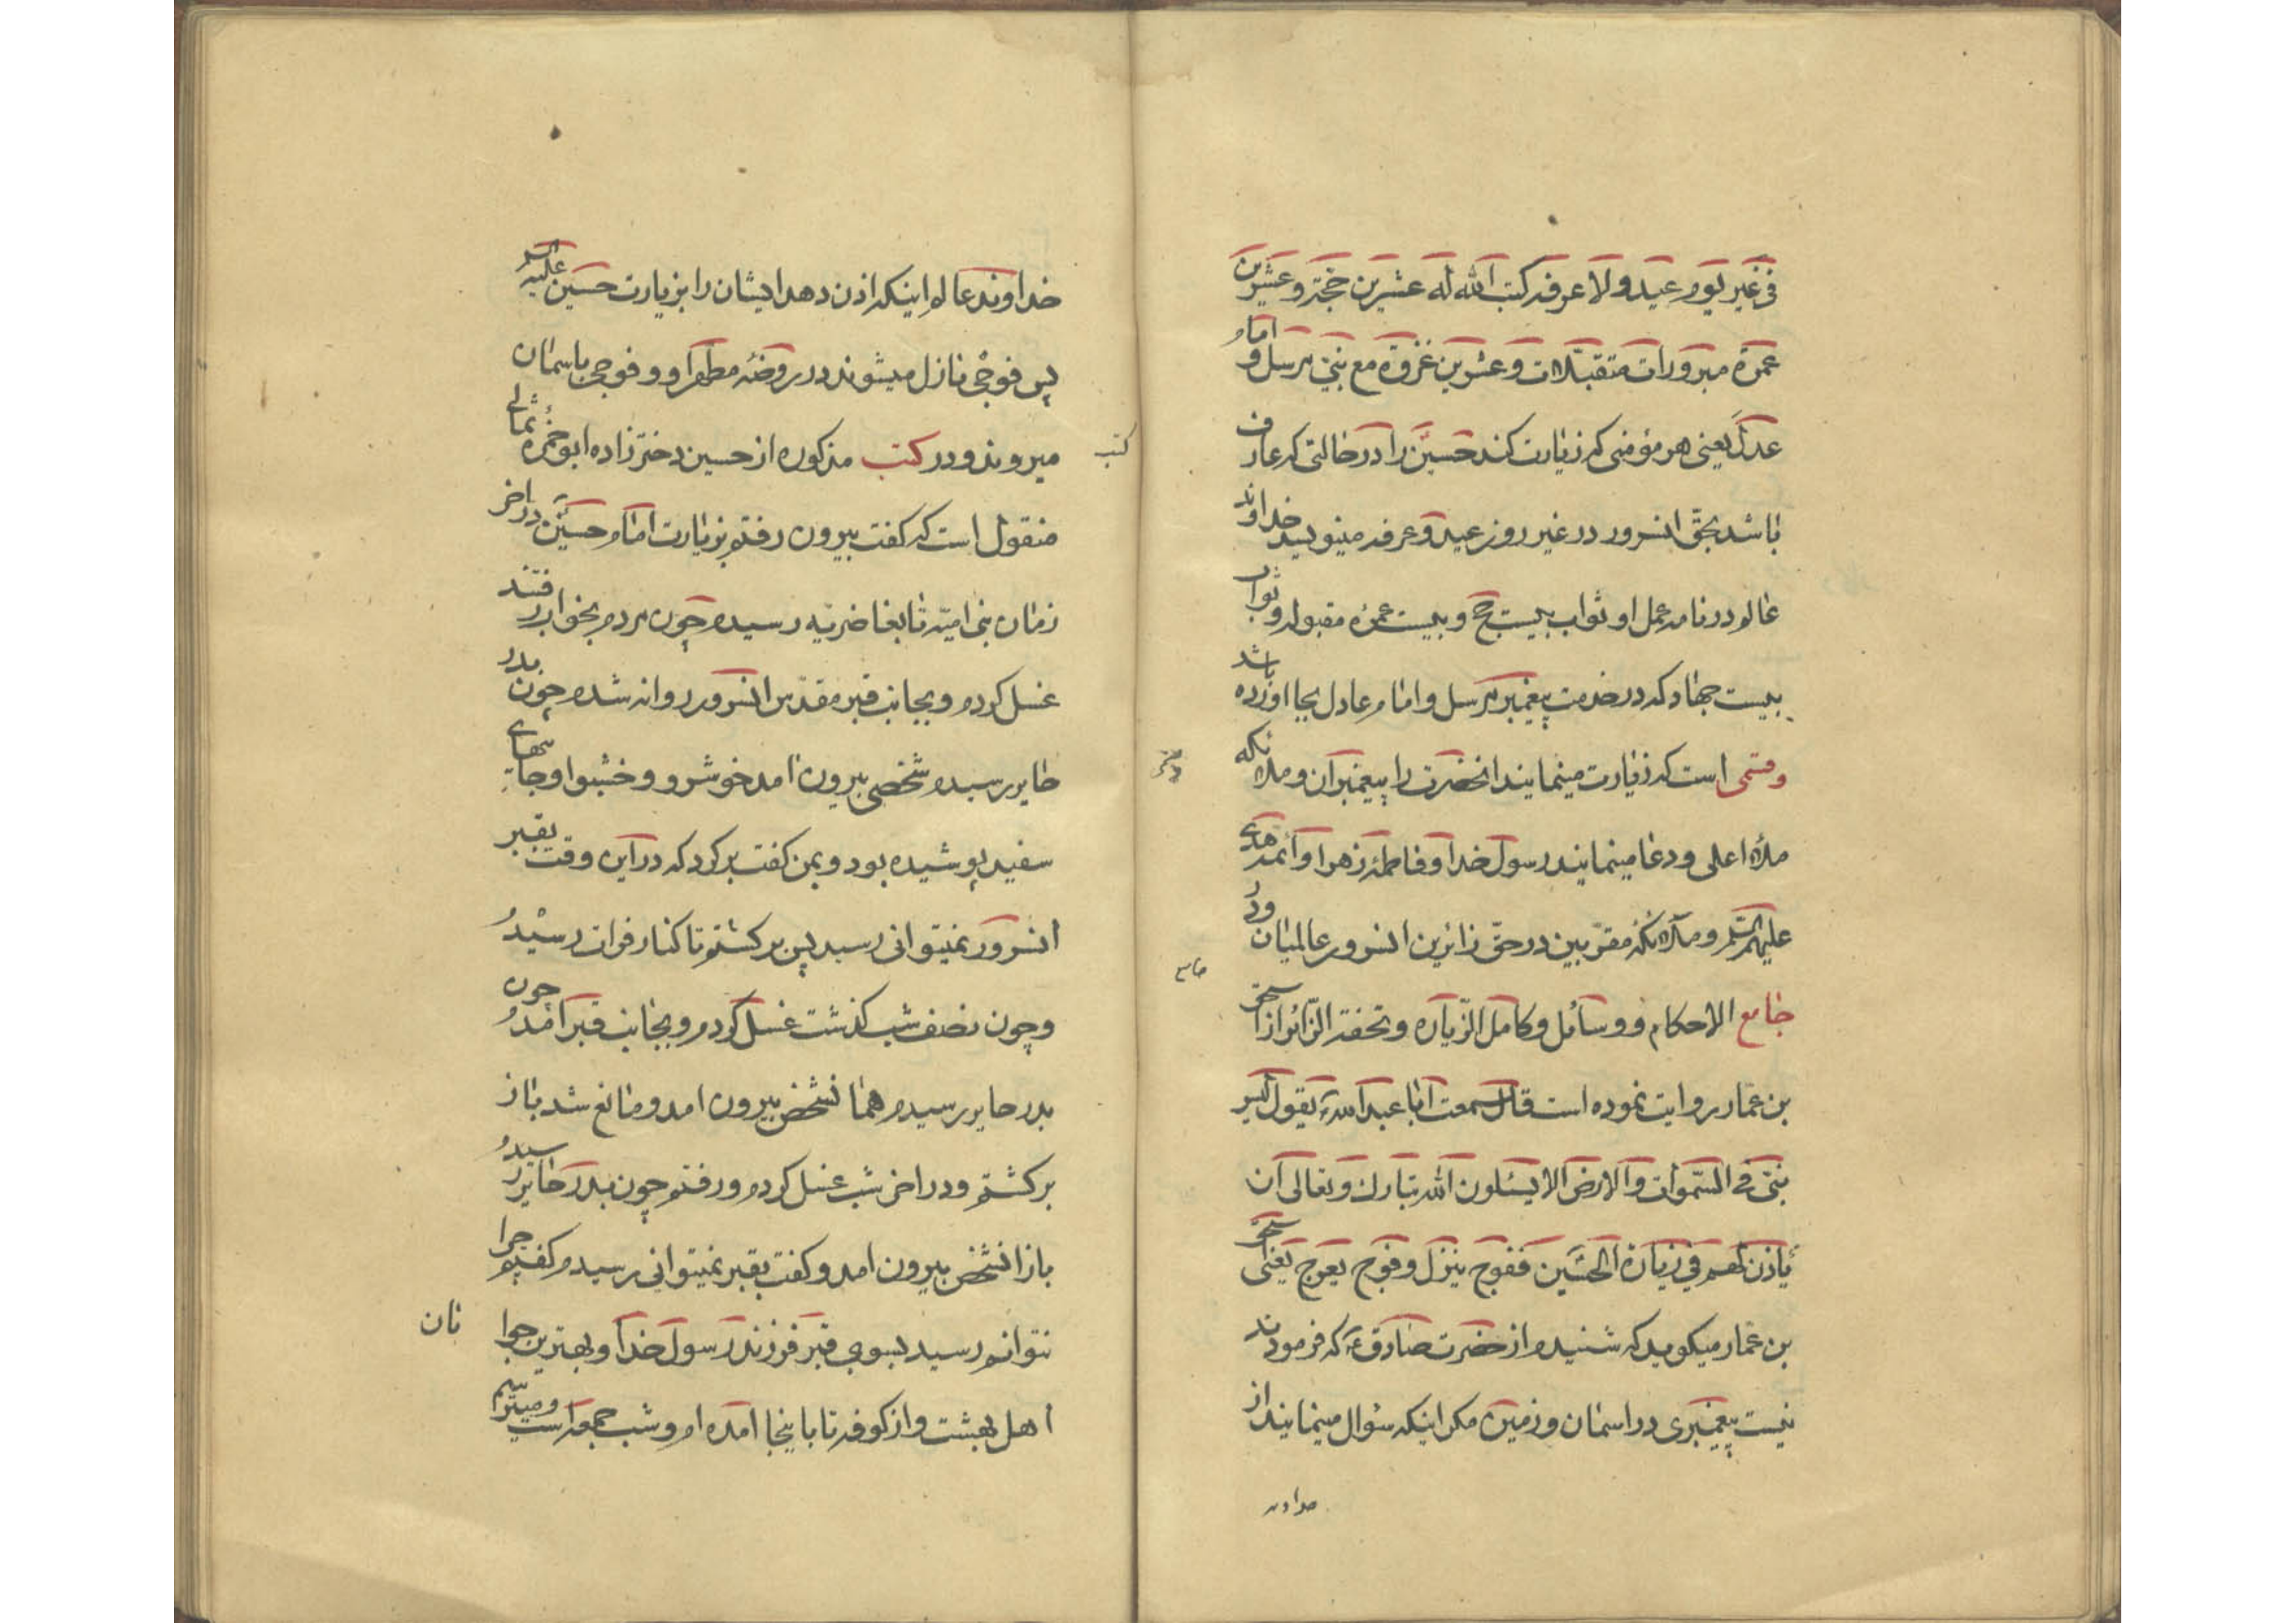 فی غیر یوم عید و لا عرفه کتب الله له عشرین حجة و عشرین
عمرة مبرورات متقبلات و عشرین غزوة مع نبی مرسل و امام
عدل یعنی هر مؤمنی که زیارت کند حسین را در حالتی که عارف
باشد بحق انسرور در غیر روز عید و عرفه مینویسد خداوند
عالم در نامه عمل او ثواب بیست حج و بیست عمره مقبوله و ثواب
بیست جهاد که در خدمت پیغمبر مرسل و امام عادل بجا اورده باشد
و قتمی است که زیارت مینمایند انحضرت را پیغمبران و ملائکه
ملاء اعلی و دعا مینمایند رسول خدا و فاطمه زهرا و ائمه هدی
علیهم السلم و ملائکه مقربین در حق زائرین انسرور عالمیان و در
جامع
جامع الاحکام و وسائل و کامل الزیاره و تحفة الزائر از اسحق
بن عمار روایت نموده است قال سمعت ابا عبد الله ع یقول لیس
نبی فی السموات و الارض الا یسئلون الله تبارک و تعالی ان
یأذن لهم فی زیارة الحسین ففوج ینزل و فوج یعرج یعنی اسحق
بن عمار میکوید که شنیدم از حضرت صادق ع که فرمودند
نیست پیغمبری در اسمان و زمین مکر اینکه سؤال مینمایند از
خداوند
خداوند عالم اینکه اذن دهد ایشان را بزیارت حسین علیه السلم
پس فوجی نازل میشوند در روضه مطهر او و فوجی باسمان
کتب
میروند و در کتب مذکوره از حسین دختر زاده ابو حمزه ثمالی
منقول است که کفت بیرون رفتم بزیارت امام حسین در اخر
زمان بنی امیه تا بغاضریه رسیدم چون مردم بخواب رفتند
غسل کردم و بجانب قبر مقدس انسرور روانه شدم چون بدر
حایر رسیدم شخصی بیرون امد خوش رو و خشبو و جامهای
سفید پوشیده بود و بمن کفت برکرد که در این وقت بقبر
انسرور نمیتوانی رسید پس برکشتم تا کنار فرات رسیدم
و چون نصف شب کذشت غسل کردم و بجانب قبر امدم چون
بدر حایر رسیدم همانشخص بیرون امد و مانع شد باز
برکشتم و در اخر شب غسل کردم و رفتم چون بدر حایر رسیدم
باز انشخص بیرون امد و کفت بقبر نمیتوانی رسیدم کفتم چرا
نتوانم رسید بسوی قبر فرزند رسول خدا و بهترین جوانان
اهل بهشت و از کوفه تا باینجا امده ام و شب جمعه است و میترسم